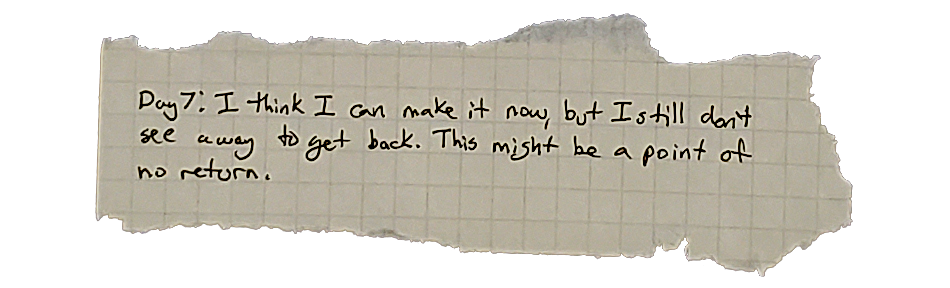 Day 7: I think I can make it now, but I still don't
see a way to get back. This might be a point of
no return.